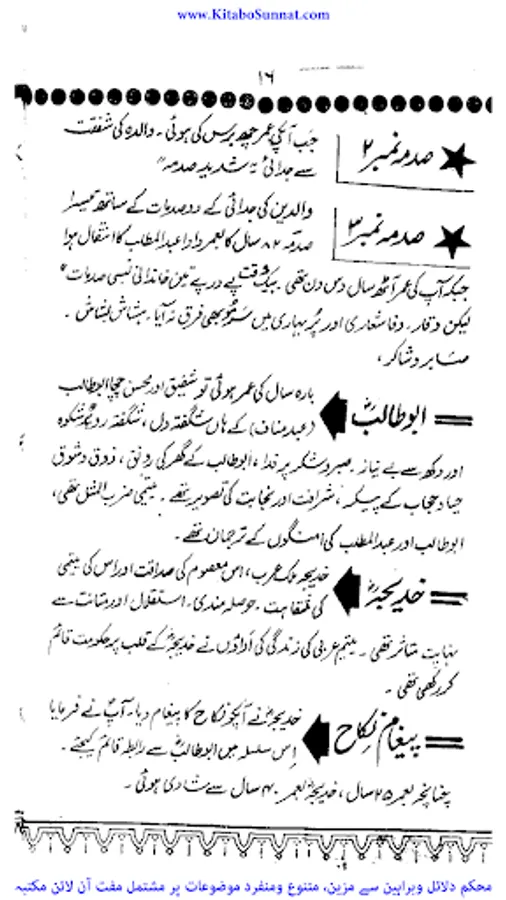 www.KitaboSunnat.com
۱۶
صدمہ نمبر ۲
جب آپکی عمر چھ برس کی ہوئی۔ والدہ کی شفقت
سے جدائی شدید صدمہ"
صدمہ نمبر ۳
والدین کی جدائی کے دو صدمات کے ساتھ تیسرا
صدمہ ۸۲ سال کا بعمر دادا عبدالمطلب کا انتقال ہوا
جبکہ آپ کی عمر آٹھ سال دس دن تھی۔ بیک وقت پے درپے تین خاندانی نسبی صدمات"
لیکن وقار۔ وفا شعاری اور پُر بہاری میں سرمو بھی فرق نہ آیا۔ ہشاش بشاش۔
صابر و شاکر،
ابو طالب
بارہ سال کی عمر ہوئی تو شفیق اور محسن چچا ابوطالب
(عبد مناف) کے ہاں شگفتہ دل، شگفتہ رو شکوہ
اور دکھ سے بے نیاز۔ صبر و شکر پر فدا، ابوطالب کے گھر کی رونق، ذوق و شوق
حیا و حجاب کے پیکر، شرافت اور نجابت کی تصویر تھے۔ یتیمی ضرب المثل تھی،
ابوطالب اور عبدالمطلب کی امنگوں کے ترجمان تھے۔
خدیجہؓ
خدیجہ ملکہ عرب، اس معصوم کی صداقت اور اس کی یتیمی
کی حوصلہ مندی۔ استقلال اور متانت سے
نہایت متاثر تھی۔ یتیم عربی کی زندگی کی اداؤں نے خدیجہؓ کے قلب پر حکومت قائم
کر رکھی تھی۔
پیغام نکاح
خدیجہؓ نے آپکو نکاح کا پیغام دیا۔ آپؐ نے فرمایا
اس سلسلہ میں ابوطالب سے رابطہ قائم کیجئے۔
چنانچہ بعمر ۲۵ سال، خدیجہؓ بعمر ۴۰ سال سے شادی ہوئی۔
محکم دلائل وبراہین سے مزین، متنوع ومنفرد موضوعات پر مشتمل مفت آن لائن مکتبہ